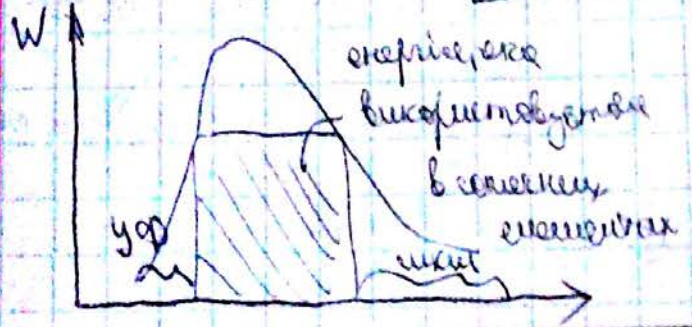 W
енергія, яка
використовується
в сонячних
елементах
УФ